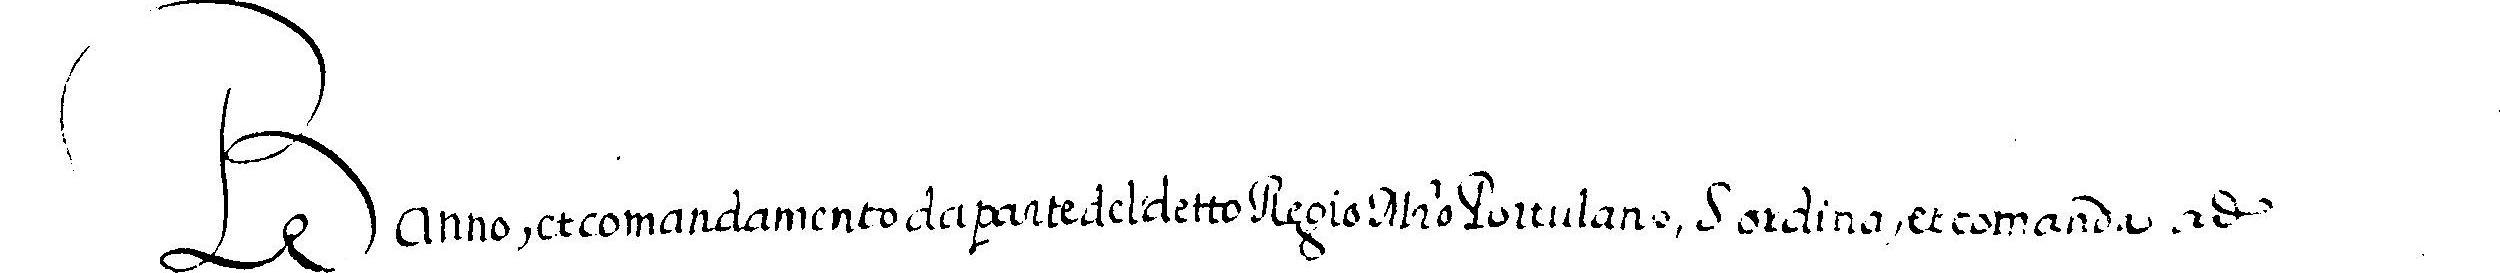 Banno, et comandamento da parte del detto Regio Mrō Portulano, S'ordina, et comanda ad